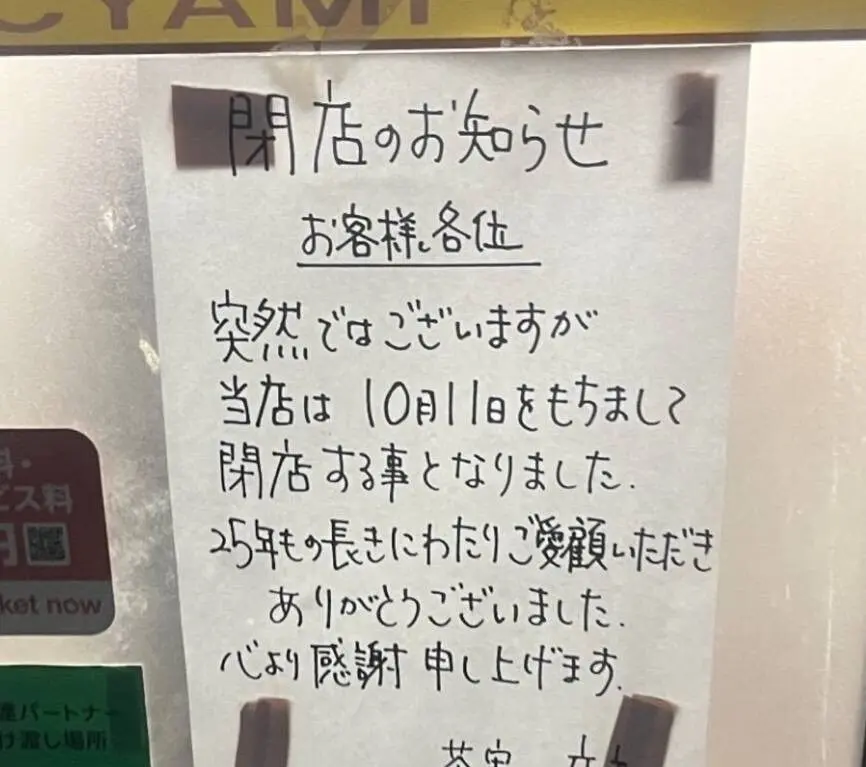 CYAMI
閉店のお知らせ
お客様各位
突然ではございますが
当店は10月11日をもちまして
閉店する事となりました.
25年もの長きにわたりご愛顧いただき
ありがとうございました.
心より感謝申し上げます.
料・
ビス料
円
ket now
達パートナー
け渡し場所